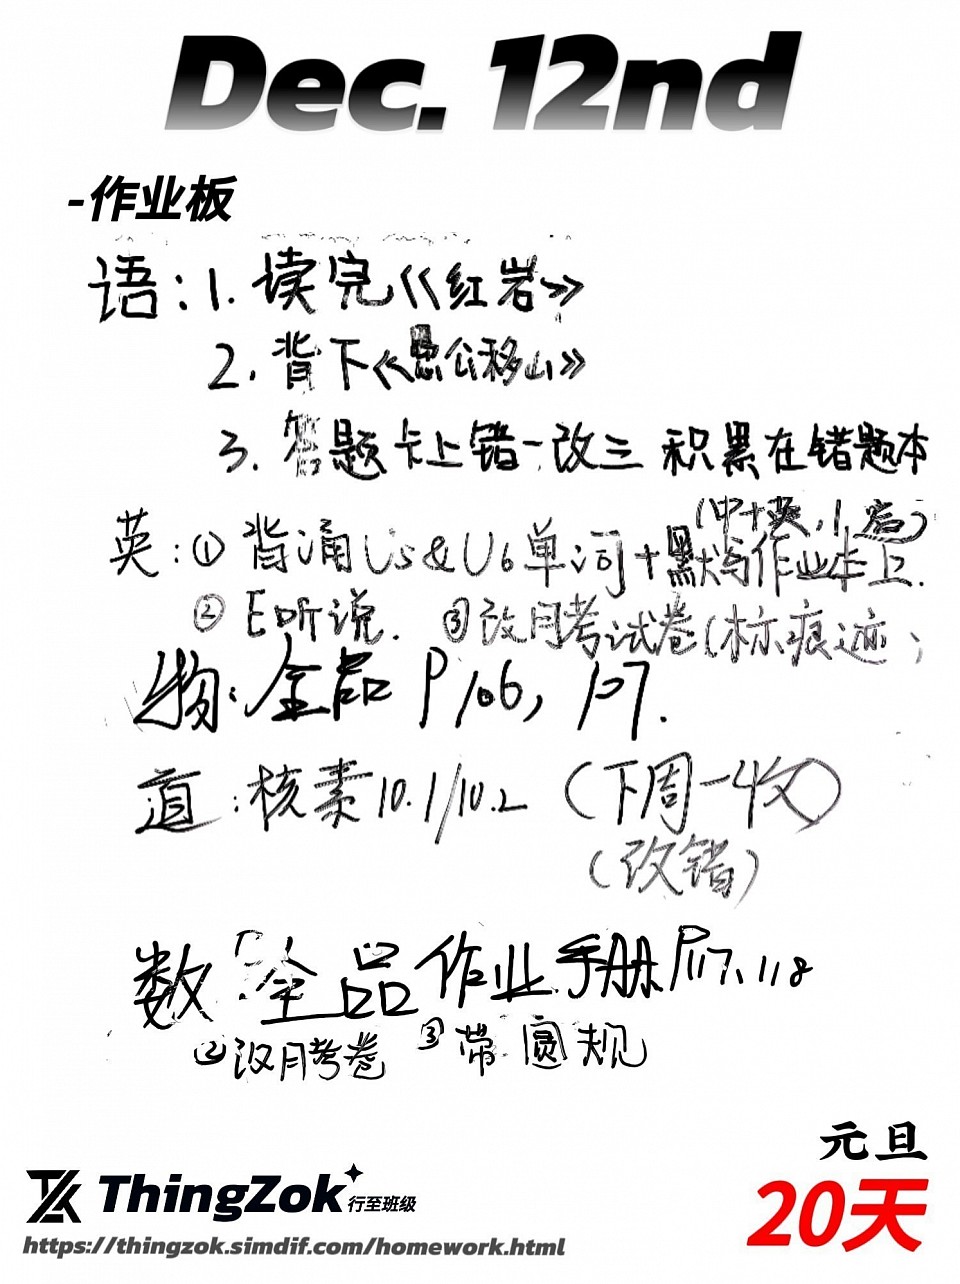 Dec. 12nd
-作业板
语：1. 读完《红岩》
2. 背下《愚公移山》
3. 答题卡上错一改三 积累在错题本
(中+英，1启)
英：① 背涌U5&U6单词+默写作业本上.
② E听说. ③改月考试卷(标痕迹;
物：全品 P106, 107.
道：核素10.1/10.2 (下周一收)
(改错)
数 全品作业手册P117、118
②改月考卷 ③带圆规
元旦
20天
ThingZok 行至班级
https://thingzok.simdif.com/homework.html